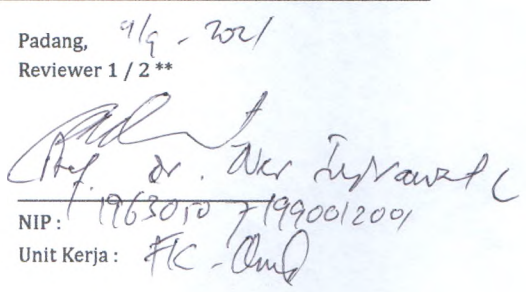 Padang, 9/9 - 2021
Reviewer 1 / 2 **
Prof. dr.
NIP : 19630507 199001 2001
Unit Kerja : FK - Unand